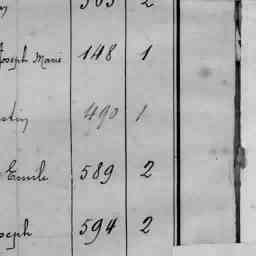 Joseph Marie 148 1
490 1
Emile 589 2
seph 594 2